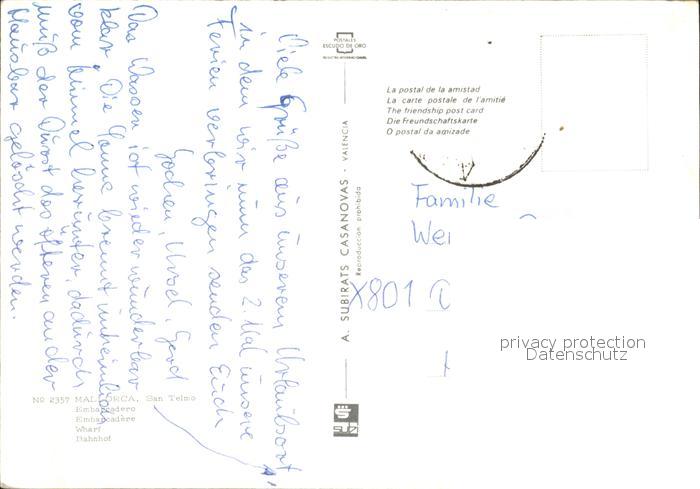 Viele Grüße aus unserem Urlaubsort
in dem wir nun das 2. Mal unsere
Ferien verbringen senden Euch
Jochen, Ursel, Gerd
Das Wasser ist wieder wunderbar
klar. Die Sonne brennt unheimlich
vom Himmel herunter, dadurch
muß der Durst des öfteren an der
Hausbar gelöscht werden.
Nº 2357 MALLORCA, San Telmo
Embarcadero
Embarcadère
Wharf
Bahnhof
POSTALES
ESCUDO DE ORO
REGISTRO INTERNACIONAL
A. SUBIRATS CASANOVAS - VALENCIA
Reproducción prohibida
La postal de la amistad
La carte postale de l'amitié
The friendship post card
Die Freundschaftskarte
O postal da amizade
Familie
Wei
X801
privacy protection
Datenschutz